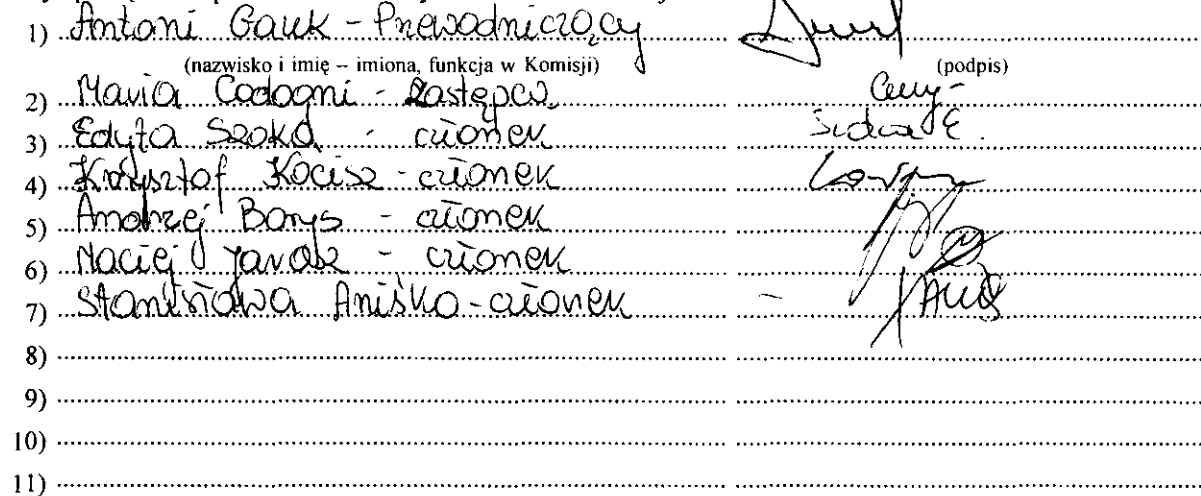 1) Antoni Gauk - Przewodniczący
(nazwisko i imię – imiona, funkcja w Komisji) (podpis)
2) Maria Codogni - zastępca
3) Edyta Szoka - członek
4) Krzysztof Kocisz - członek
5) Andrzej Borys - członek
6) Maciej Jarosz - członek
7) Stanisława Aniśko - członek
8)
9)
10)
11)